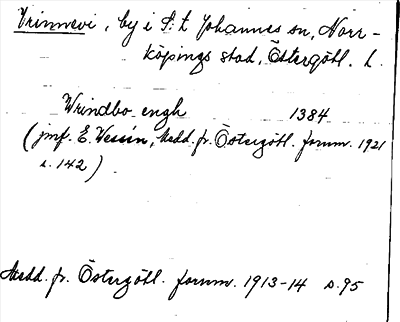 Vrinnevi, by i S:t Johannes sn, Norr-
köpings stad, Östergötl. L.
Wrindbo engh 1384
(jmf. E. Wessén, Medd. fr. Östergötl. fornm. 1921
s. 142)
Medd. fr. Östergötl. fornm. 1913-14 s. 95